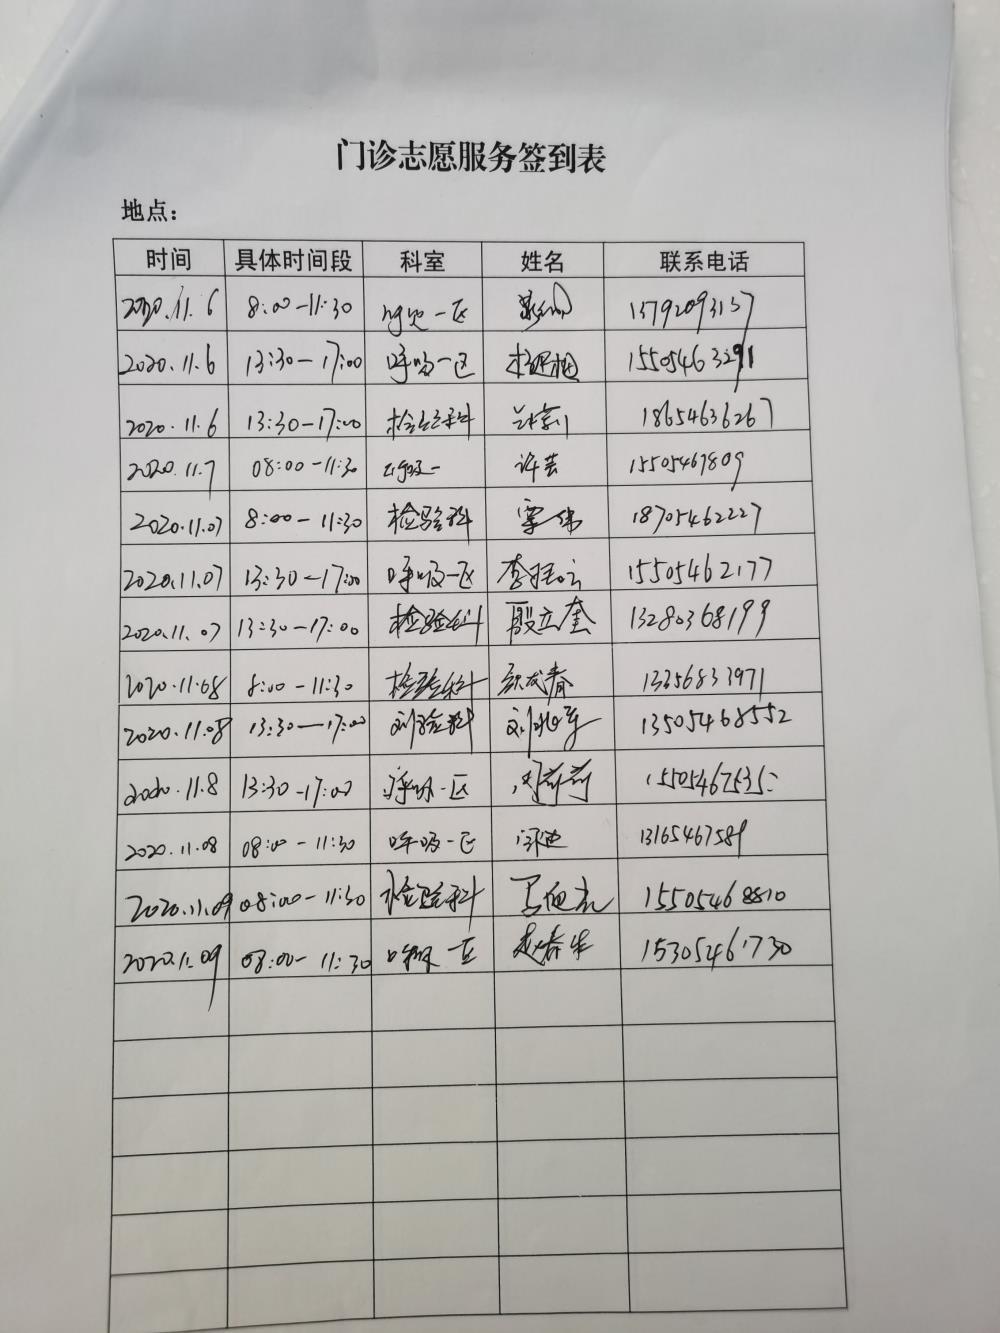 门诊志愿服务签到表
地点：
时间 具体时间段 科室 姓名 联系电话
2020.11.6 8:00-11:30 呼吸一区 13792093137
2020.11.6 13:30-17:00 呼吸一区 15505463291
2020.11.6 13:30-17:00 检验科 18654636267
2020.11.7 08:00-11:30 呼吸一 许芸 15505467809
2020.11.07 8:00-11:30 检验科 18705462227
2020.11.07 13:30-17:00 呼吸一区 15505462177
2020.11.07 13:30-17:00 检验科 殷立奎 13280368199
2020.11.08 8:00-11:30 检验科 13356833971
2020.11.08 13:30-17:00 13505468552
2020.11.8 13:30-17:00 呼吸一区
2020.11.08 08:00-11:30 呼吸一区 13165467589
2020.11.09 08:00-11:30 检验科 15505468810
2020.11.09 08:00-11:30 呼吸一区 赵春生 15305461730